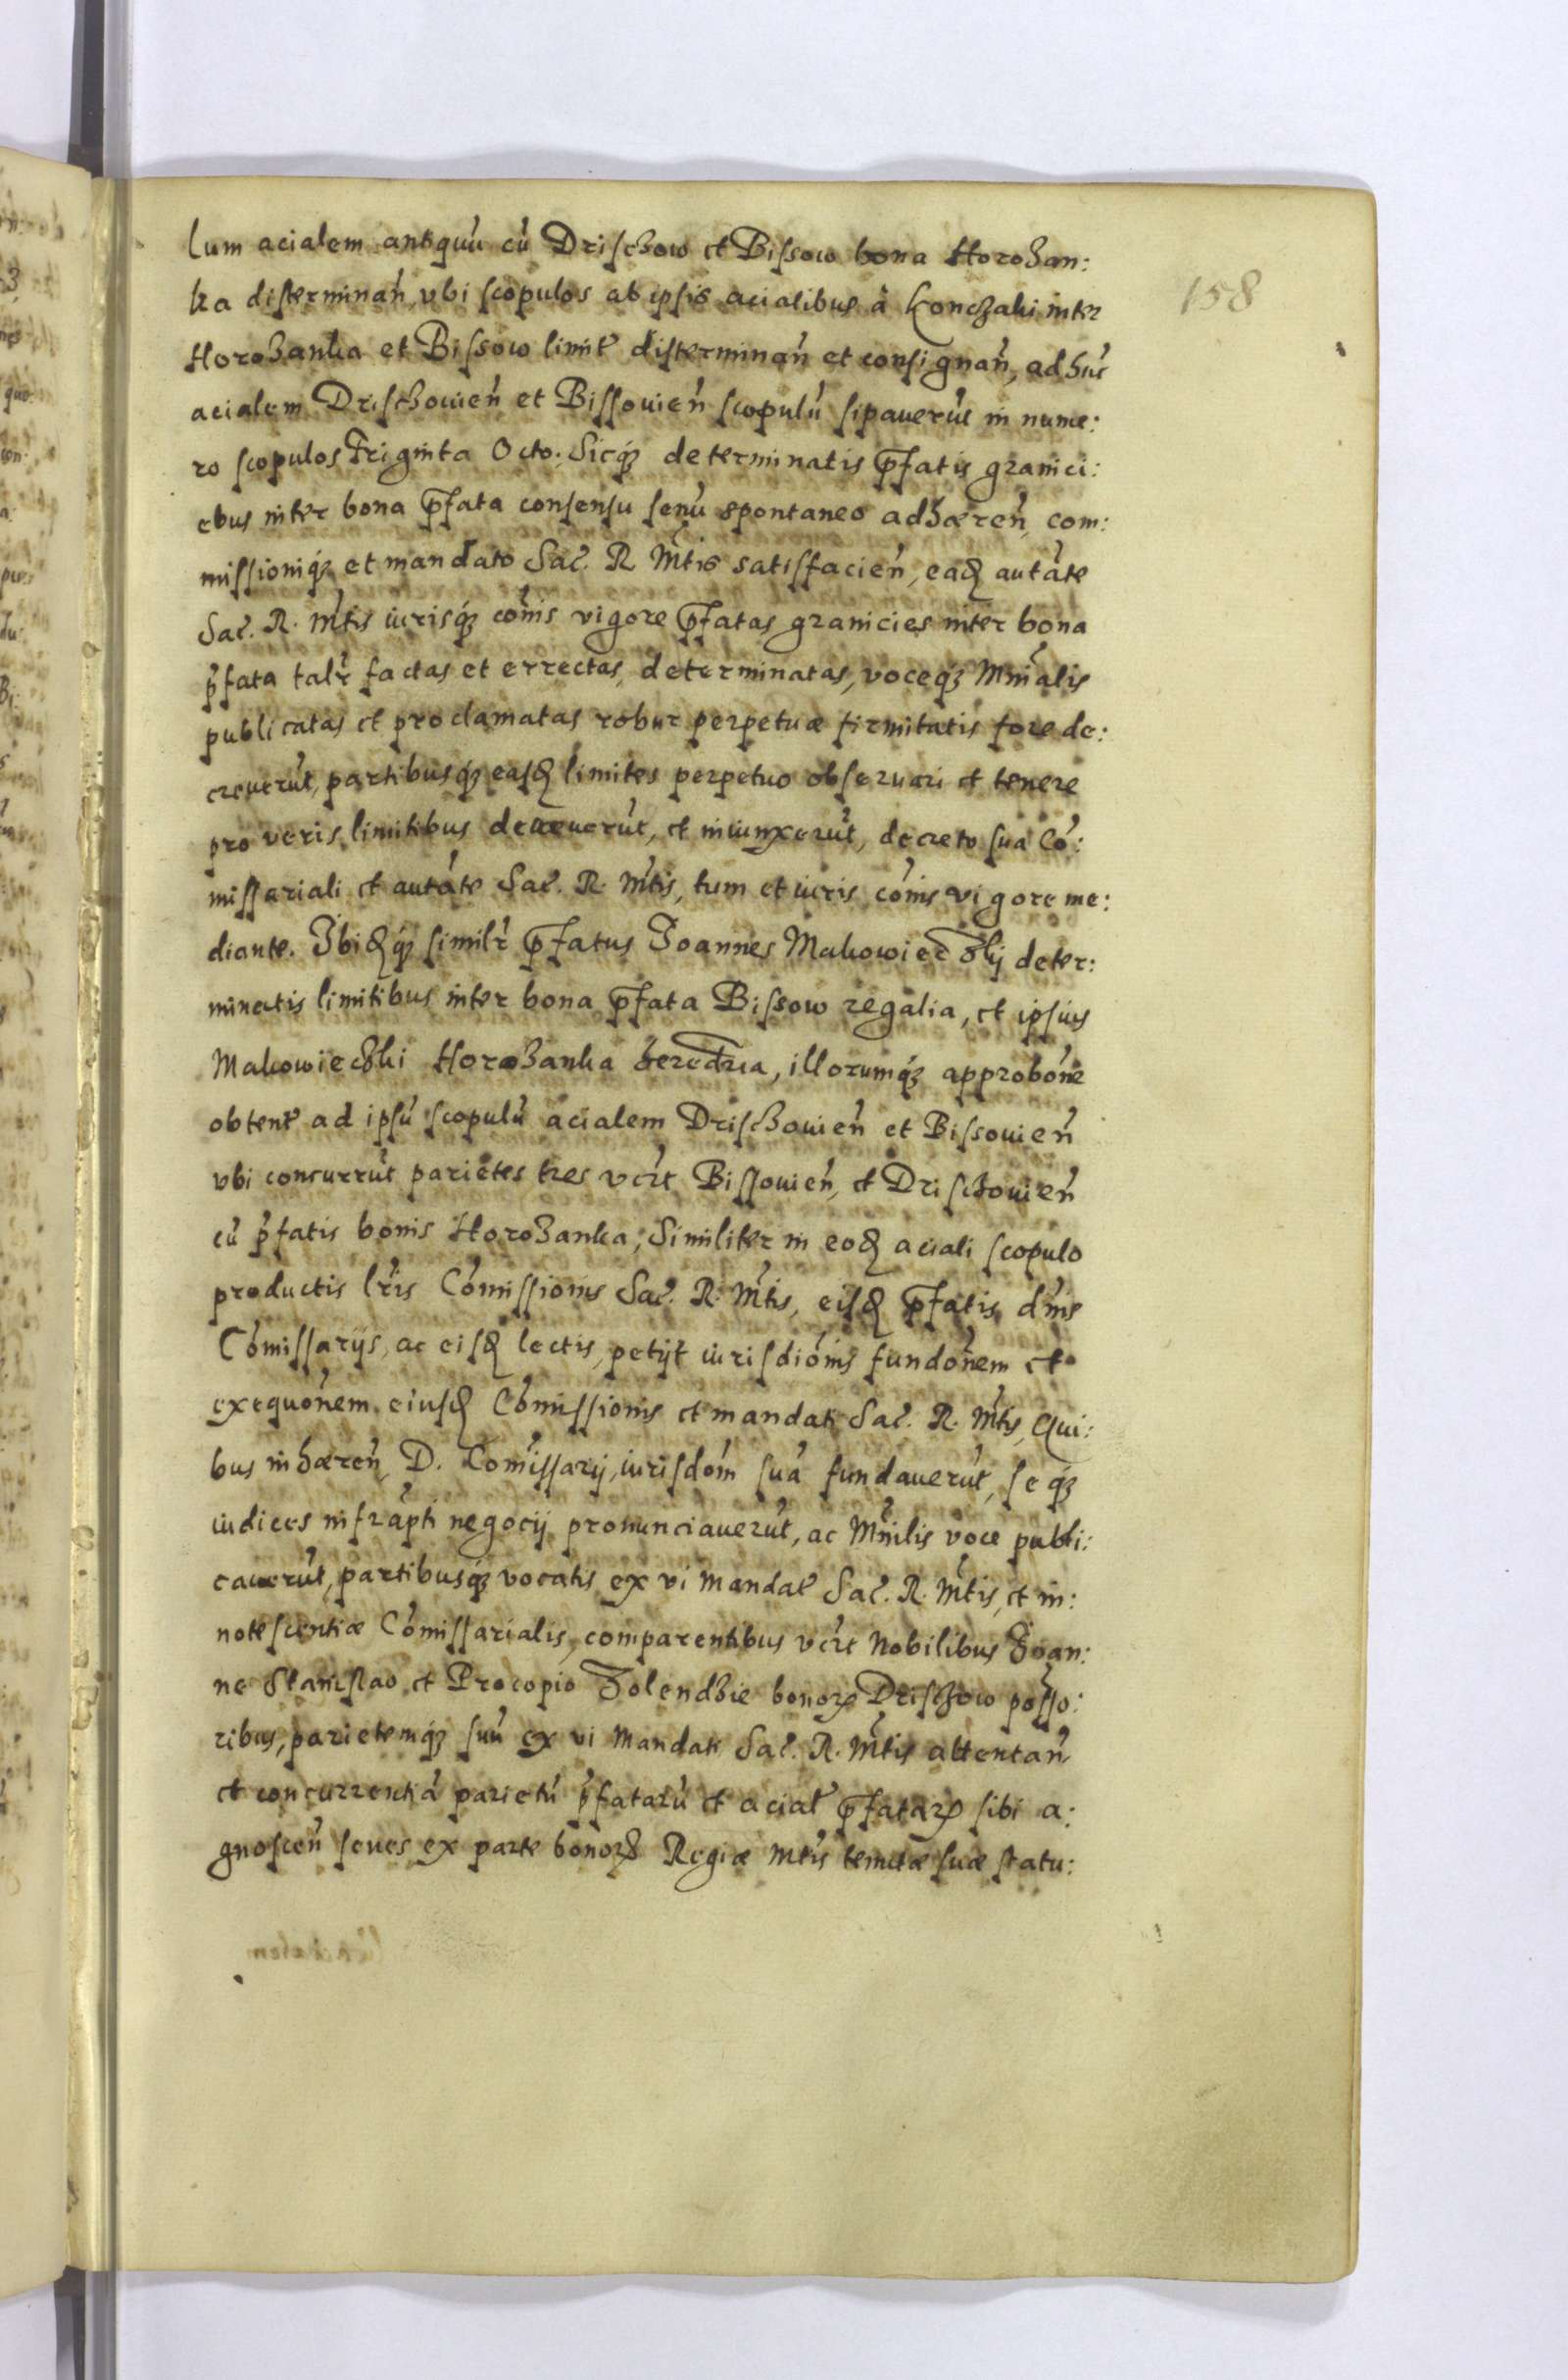 158
lum acialem antiquū cū Drischow et Bissow bona Horożan:
ka disterminań, vbi scopulos ab ipsis acialibus à Konczaki inter
Horożanka et Bissow limit̃ disterminań et consignań, ad hūc
acialem Drischowień et Bissouień scopulū sipauerūt in nume:
ro scopulos Triginta Octo. Sicq́; determinatis p̄fatis granici:
ebus inter bona p̄fata consensu senū spontaneo adhæreń, com:
missioniq́; et mandato Sac̃. R. Mt̃is satisfacień, eaḋ autãte
Sac̃. R. Mt̃is iurisq́; cōis vigore p̄fatas granicies inter bona
p̃fata talr̃ factas et errectas, determinatas, voceq́; Mniãlis
publicatas et proclamatas robur perpetuæ firmitatis fore de:
creuerūt, partibusq́; easḋ limites perpetuo obseruari et tenere
pro veris limitibus decreuerūt, et iniunxerūt, decreto suo Cō:
missariali et autãte Sac̃. R. Mt̃is, tum et iuris cōis vigore me:
diante. Ibiḋq́; similr̃ p̄fatus Joannes Makowiec̃ki deter:
minatis limitibus inter bona p̄fata Bissow regalia, et ipsius
Makowieczki Horożanka heredr̃ia, illorumq́; approbōne
obtent̃ ad ipsū scopulū acialem Drischouień et Bissouień
vbi concurrūt parietes tres vcr̃t Bissouień, et Drischouień
cū p̃fatis bonis Horożanka; Similiter in eoḋ aciali scopulo
productis lr̃is Cōmissionis Sac̃. R. Mt̃is, eisḋ p̄fatis dn̄is
Cōmissarijs, ac eisḋ lectis, petijt iurisdiōnis fundōnem et
exequōnem eiusḋ Cōmissionis et mandati Sac̃. R. Mt̃is, Qui:
bus inhæreń, D. Com̃issarij, iurisdōm suā fundauerūt, seq́;
iudices infrap̃ti negocij pronunciauerūt, ac Mñilis voce publi:
cauerūt, partibusq́; vocatis ex vi mandat̃ Sac̃. R. Mt̃is, et in:
notescentiæ Cōmissarialis, comparentibus vcr̃t Nobilibus Joan:
ne Stanislao et Procopio Zolendzie bonoꝝ Drischow posso:
ribus, parietemq́; suū ex vi Mandati Sac̃. R. Mt̃is attentań
et concurrentiā parietū p̃fatarū et acial̃ p̄fataꝝ sibi a:
gnosceń seues ex parte bonoꝝ Regiæ Mt̃is temutæ suæ statu: